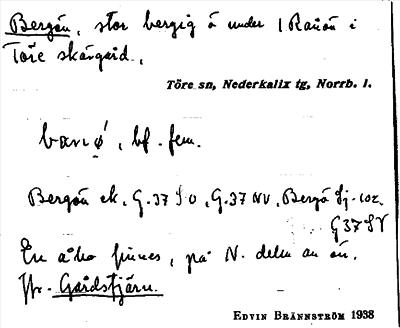 Bergön, stor bergig ö under 1 Ranön i
Töre skärgård.
Töre sn, Nederkalix tg, Norrb. l.
bærıø̀, bf. fem.
Bergön ek. G.37 SO, G.37 NV, Bergö fj.-
G37 SV
En å ho finnes, på N. delen av ön.
Gårdstjärn.
EDVIN BRÄNNSTRÖM 1938